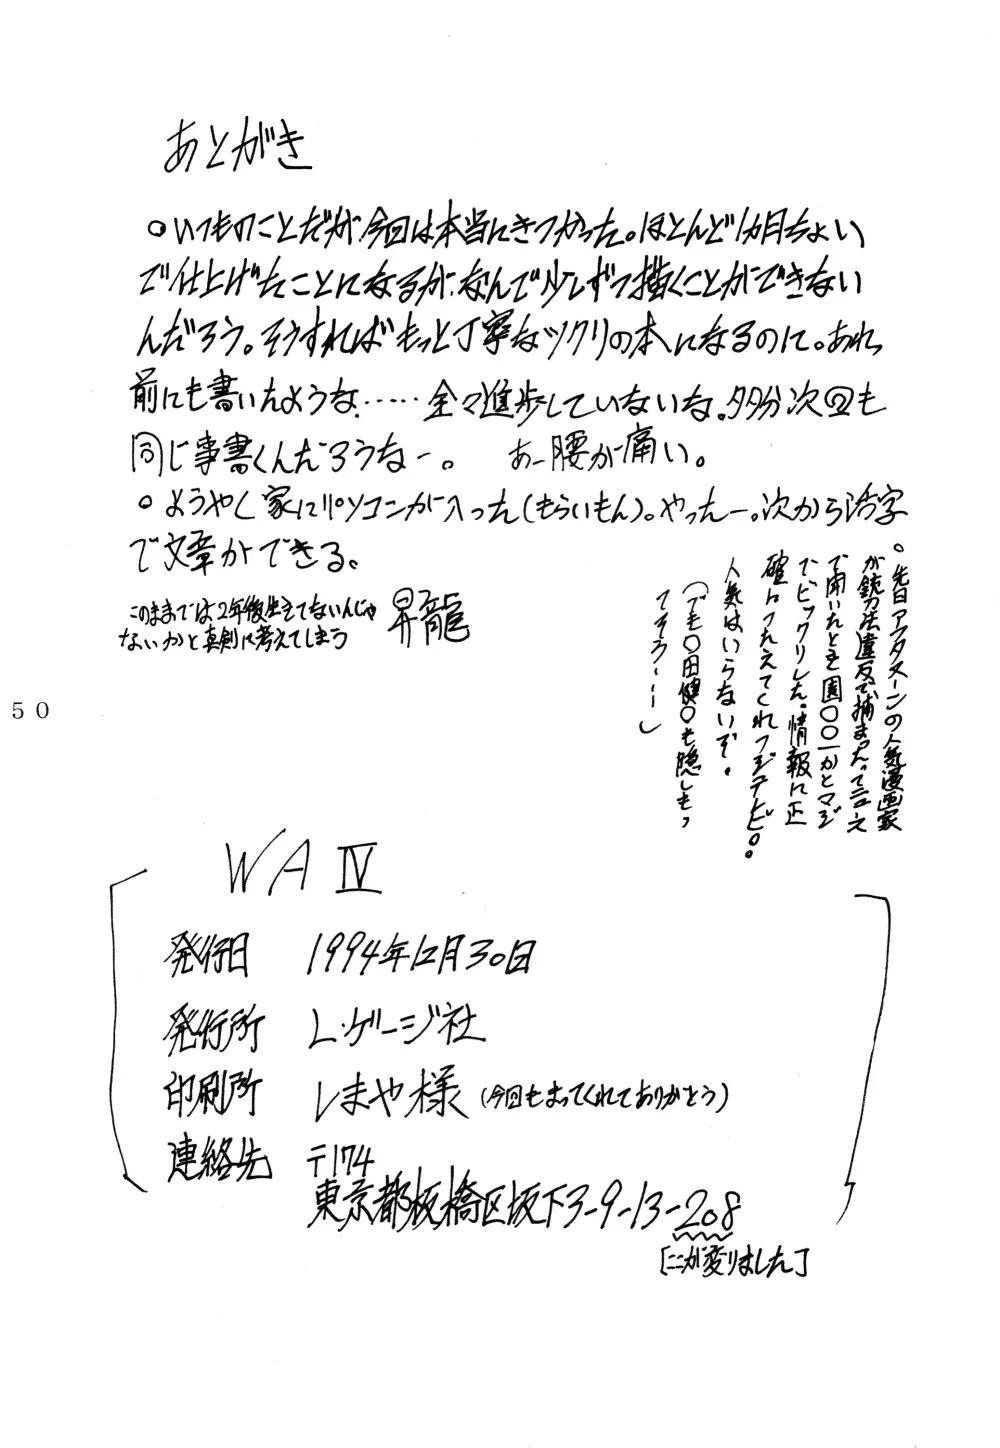 あとがき
○いつものことだが今回は本当にきつかった。ほとんど1カ月ちょい
で仕上げたことになるが、なんで少しずつ描くことができない
んだろう。そうすればもっと丁寧なツクリの本になるのに。あれ
前にも書いたような……全々進歩していないな。多分次回も
同じ事書くんだろうなー。 あー腰が痛い。
○ようやく家にパソコンが入った(もらいもん)。やったー。次から活字
で文章ができる。
このままでは2年後生きてないんじゃ
ないかと真剣に考えてしまう
昇龍
○先日アフタヌーンの人気漫画家
が銃刀法違反で捕まったってニュース
で聞いたとき園○○一かとマジ
でビックリした。情報は正
確につたえてくれフジテレビ。。
人気はいらないぞ。
(でも○田健○も隠しもっ
てそうーー)
50
WA Ⅳ
発行日 1994年12月30日
発行所 L・ゲージ社
印刷所 しまや様(今回もまってくれてありがとう)
連絡先 〒174
東京都板橋区坂下3-9-13-208
「ここが変りました」